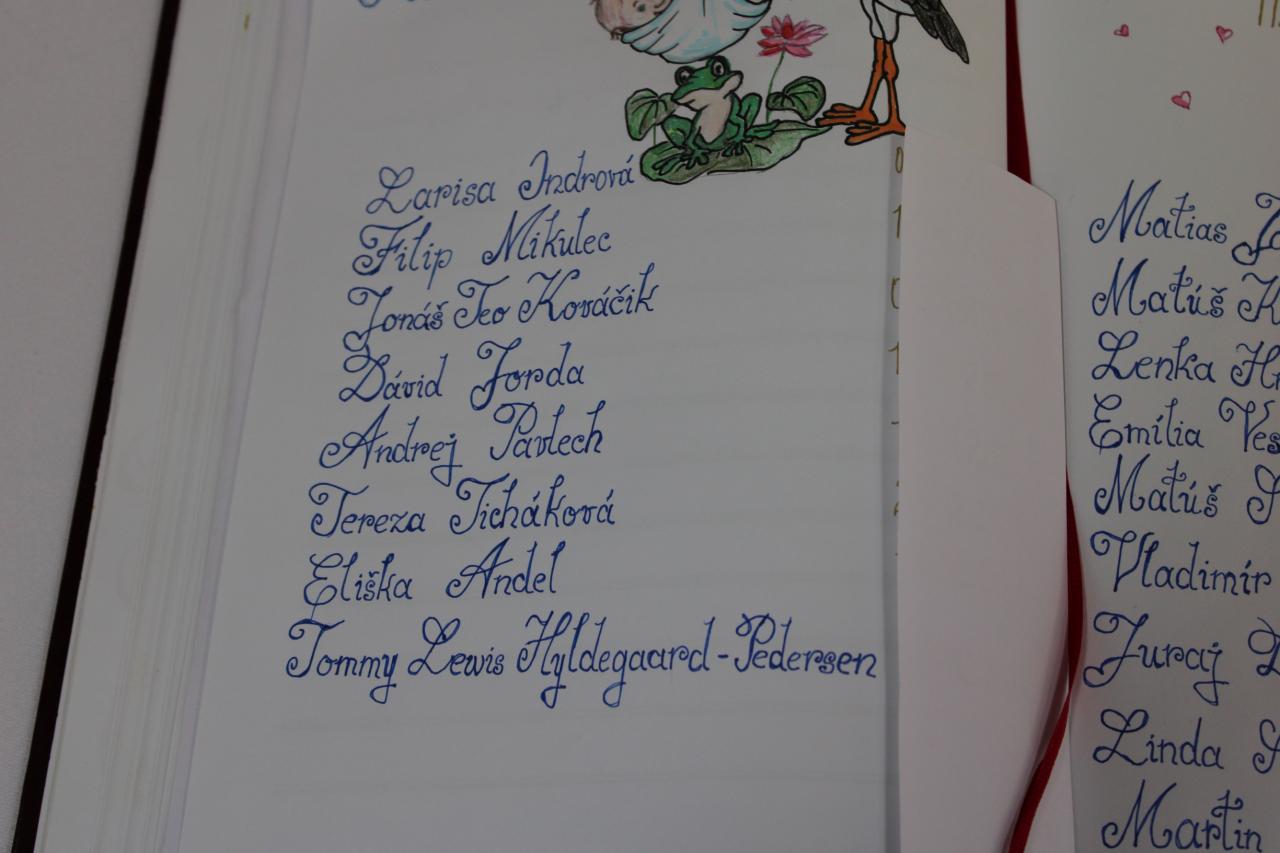 Larisa Indrová
Filip Mikulec
Jonáš Teo Kováčik
Dávid Jorda
Andrej Pavlech
Tereza Ticháková
Eliška Andel
Tommy Lewis Hyldegaard-Pedersen
Matias
Matúš
Lenka
Emília
Matúš
Vladimír
Juraj
Linda
Martin